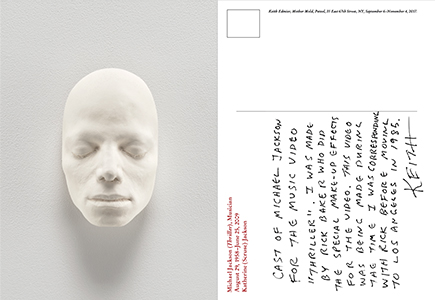 Keith Edmier, Mother Mold, Petzel, 35 East 67th Street, NY, September 6–November 4, 2017
Michael Jackson (Thriller), Musician
August 29, 1958–June 25, 2009
Katherine (Scruse) Jackson
CAST OF MICHAEL JACKSON
FOR THE MUSIC VIDEO
"THRILLER". I WAS MADE
BY RICK BAKER WHO DID
THE SPECIAL MAKE-UP EFFECTS
FOR THE VIDEO. THIS VIDEO
WAS BEING MADE DURING
THE TIME I WAS CORRESPONDING
WITH RICK BEFORE MOVING
TO LOS ANGELES IN 1985.
KEITH